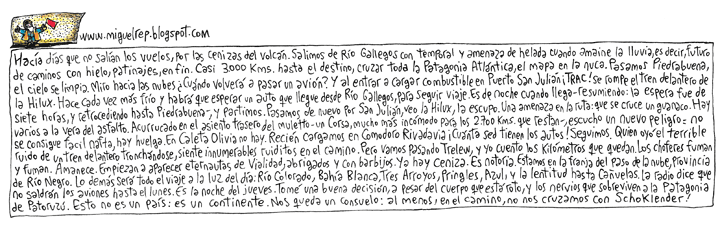 www.miguelrep.blogspot.com
Hacía días que no salían los vuelos, por las cenizas del volcán. Salimos de Río Gallegos con temporal y amenaza de helada cuando amaine la lluvia, es decir, futuro
de caminos con hielo, patinajes, en fin. Casi 3000 Kms. hasta el destino, cruzar toda la Patagonia Atlántica, el mapa en la nuca. Pasamos Piedrabuena,
el cielo se limpia. Miro hacia las nubes ¿Cuándo volverá a pasar un avión? Y al entrar a cargar combustible en Puerto San Julián ¡TRAC! Se rompe el tren delantero de
la Hilux. Hace cada vez más frío y habrá que esperar un auto que llegue desde Río Gallegos, para seguir viaje. Es de noche cuando llega -resumiendo: la espera fue de
siete horas, y retrocediendo hasta Piedrabuena-, y partimos. Pasamos de nuevo por San Julián, veo la Hilux, la escupo. Una amenaza en la ruta: que se cruce un guanaco. Hay
varios a la vera del asfalto. Acurrucado en el asiento trasero del muletto -un Corsa, mucho más incómodo para los 2700 Kms. que restan-, escucho un nuevo peligro: no
se consigue fácil nafta, hay huelga. En Caleta Olivia no hay. Recién cargamos en Comodoro Rivadavia ¡Cuánta sed tienen los autos! Seguimos. Quien oyó el terrible
ruido de un tren delantero tronchándose, siente innumerables ruiditos en el camino. Pero vamos pasando Trelew, y yo cuento los kilómetros que quedan. Los choferes fuman
y fuman. Amanece. Empiezan a aparecer eternautas de Vialidad, abrigados y con barbijos. Ya hay ceniza. Es notoria. Estamos en la franja del paso de la nube, Provincia
de Río Negro. Lo demás será todo el viaje a la luz del día: Río Colorado, Bahía Blanca, Tres Arroyos, Pringles, Azul, y la lentitud hasta Cañuelas. La radio dice que
no saldrán los aviones hasta el lunes. Es la noche del jueves. Tomé una buena decisión, a pesar del cuerpo que está roto, y los nervios que sobreviven a la Patagonia
de Patoruzú. Esto no es un país: es un continente. Nos queda un consuelo: al menos, en el camino, no nos cruzamos con Schoklender!